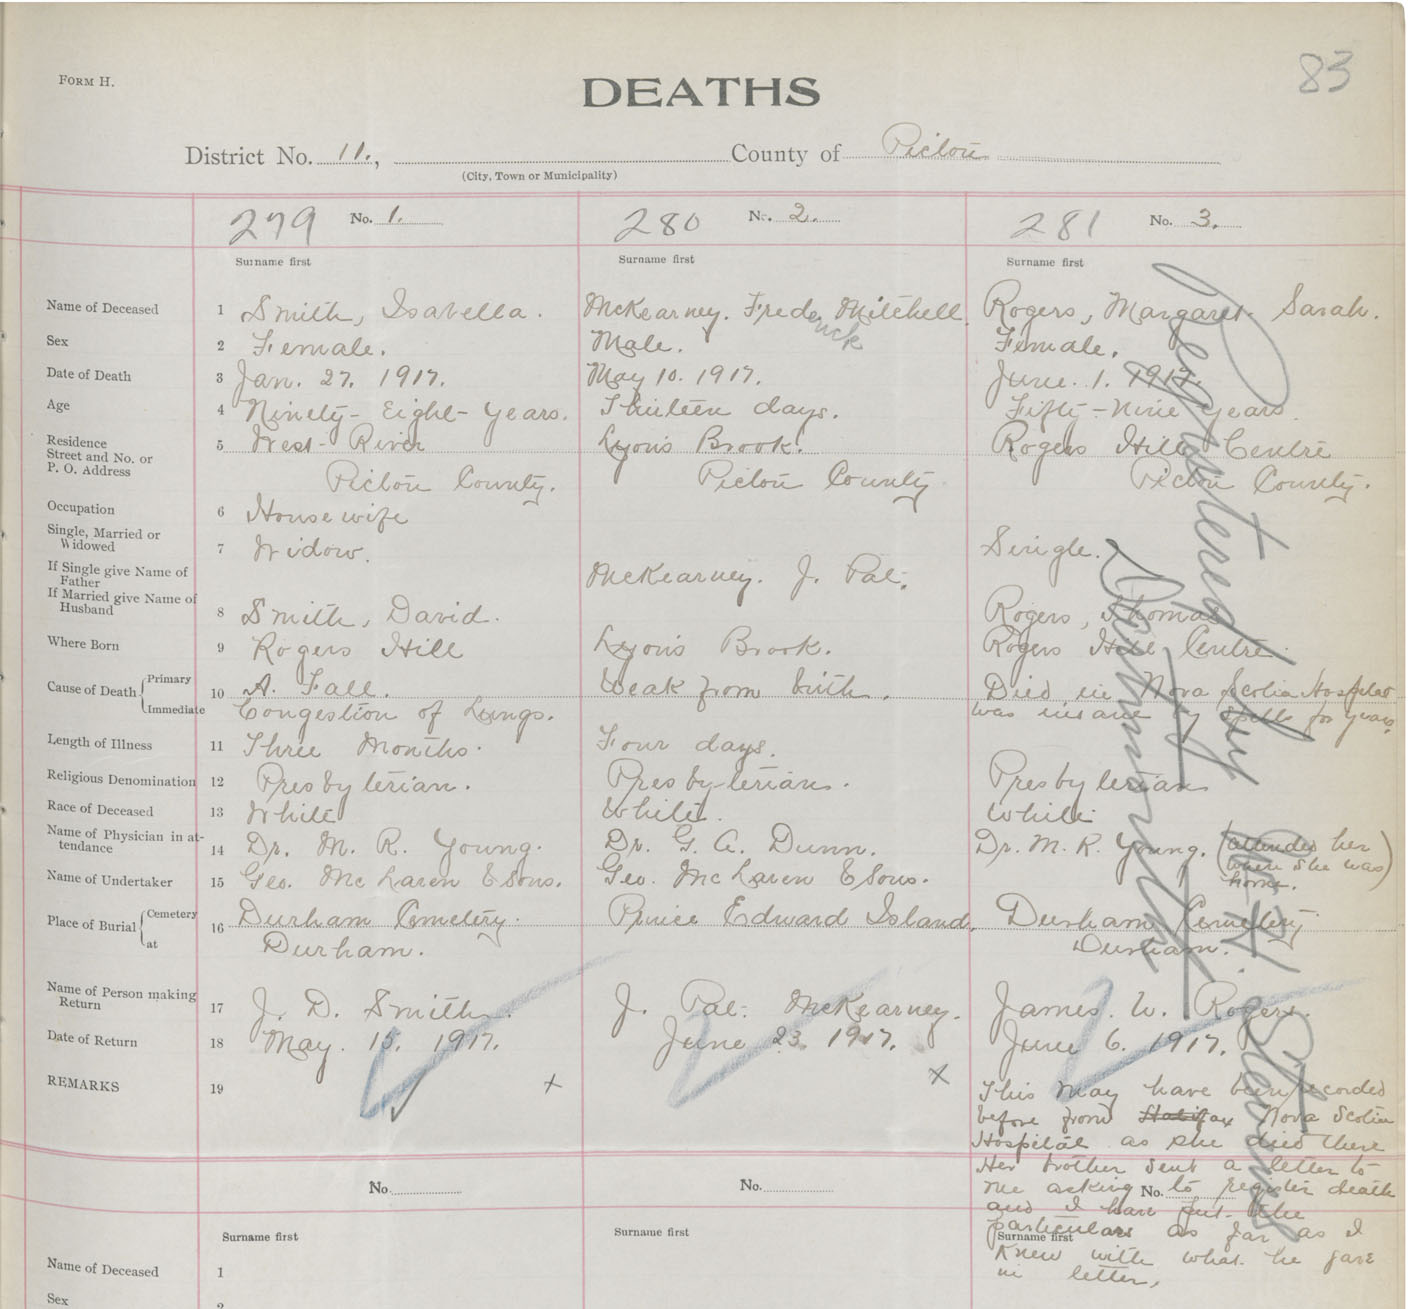 FORM H.
DEATHS
83
District No. 11., County of Pictou
(City, Town or Municipality)
279 No. 1. 280 No. 2. 281 No. 3.
Surname first Surname first Surname first
Name of Deceased 1 Smith, Isabella. McKearney. Frederick Mitchell. Rogers, Margaret Sarah.
Sex 2 Female. Male. Female.
Date of Death 3 Jan. 27. 1917. May 10. 1917. June. 1. 1917.
Age 4 Ninety-Eight-Years. Thirteen days. Fifty-Nine Years.
Residence
Street and No. or 5 West River Lyons Brook. Rogers Hill Centre
P. O. Address Pictou County. Pictou County Pictou County.
Occupation 6 Housewife
Single, Married or
Widowed 7 Widow. Single.
If Single give Name of
Father McKearney. J. Pat.
If Married give Name of
Husband 8 Smith, David. Rogers, Thomas
Where Born 9 Rogers Hill Lyons Brook. Rogers Hill Centre.
Cause of Death Primary 10 A. Fall. Weak from birth. Died in Nova Scotia Hospital
Immediate Congestion of Lungs. was insane by spells for years.
Length of Illness 11 Three Months. Four days.
Religious Denomination 12 Presbyterian. Presbyterian. Presbyterian
Race of Deceased 13 White White. White
Name of Physician in at-
tendance 14 Dr. M. R. Young. Dr. G. A. Dunn. Dr. M. R. Young. (attended her
where she was)
home.
Name of Undertaker 15 Geo. McLaren & Sons. Geo. McLaren & Sons.
Place of Burial Cemetery 16 Durham Cemetery. Prince Edward Island. Durham Cemetery
at Durham. Durham.
Name of Person making
Return 17 J. D. Smith. J. Pat. McKearney. James. W. Rogers.
Date of Return 18 May. 15. 1917. June 23. 1917. June 6. 1917.
REMARKS 19 x x This may have been recorded
before from Halifax Nova Scotia
Hospital as she died there
Her brother sent a letter to
me asking to register death
and I have put the
particulars as far as I
knew with what he gave
in letter.
Registered by
Dartmouth
No. No. No.
Surname first Surname first Surname first
Name of Deceased 1
Sex 2